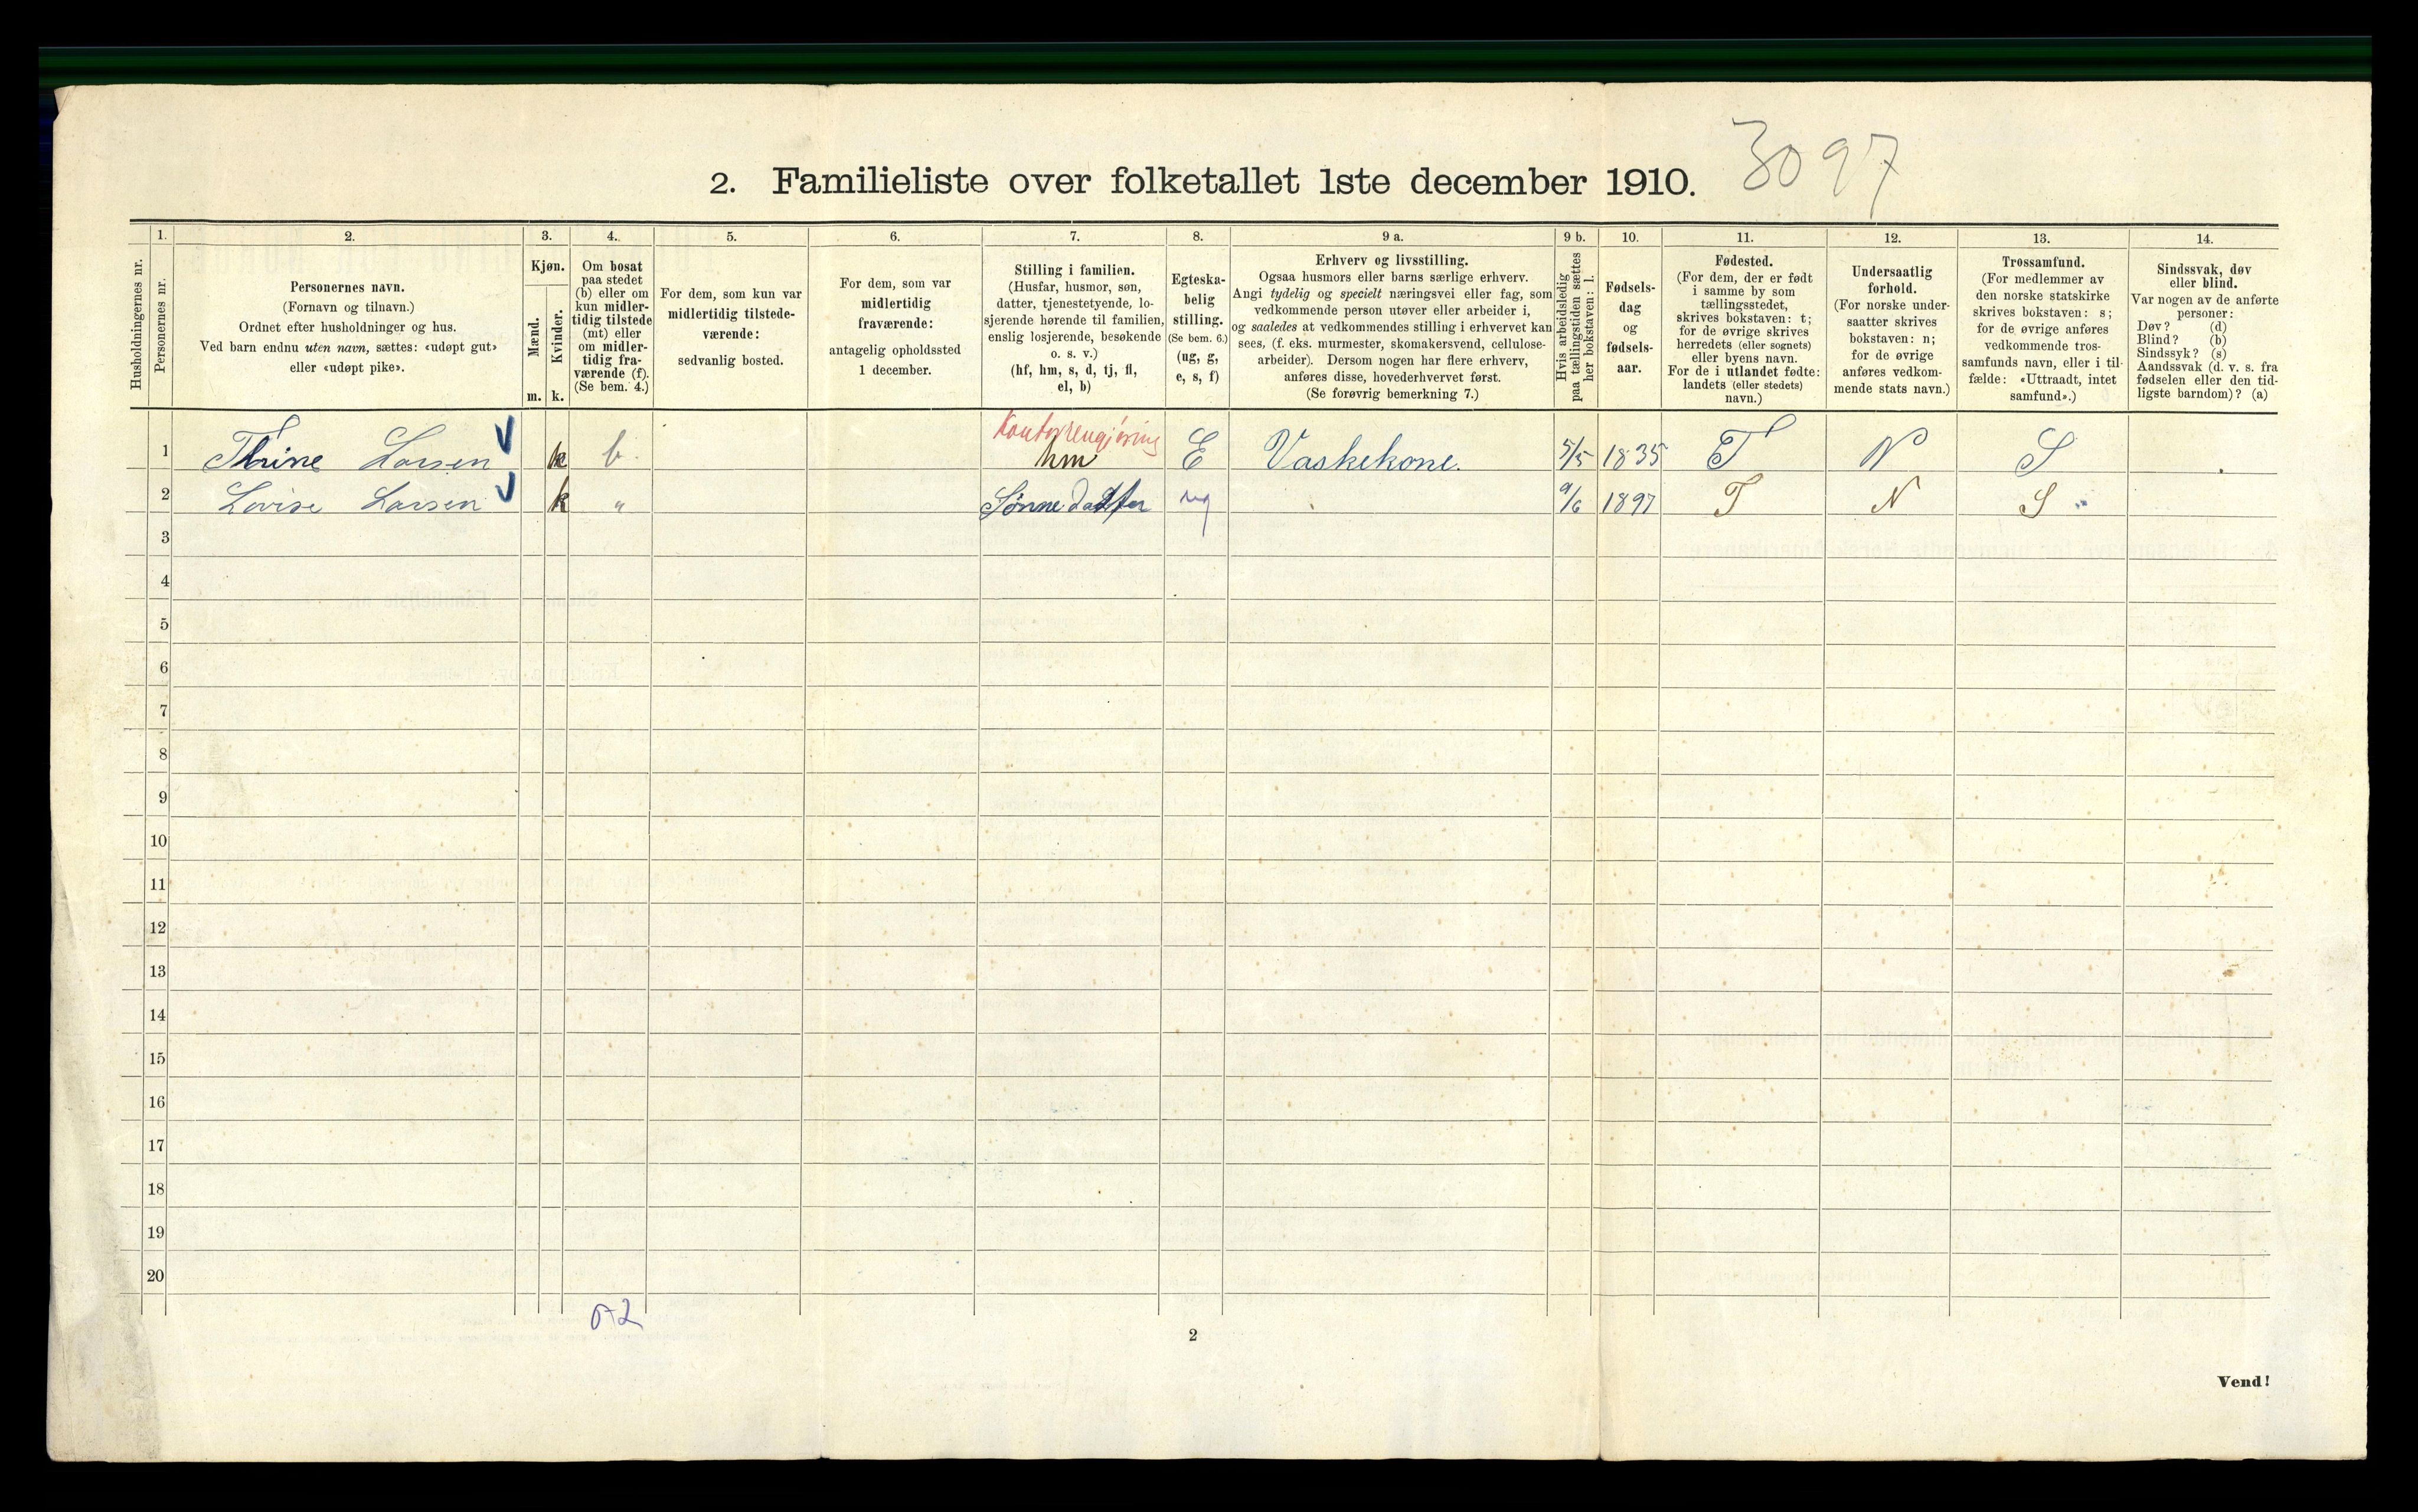 3097
2. Familieliste over folketallet 1ste december 1910.
1. 2. 3. 4. 5. 6. 7. 8. 9 a. 9 b. 10. 11. 12. 13. 14.
Husholdningernes nr.
Personernes nr.
Personernes navn.
(Fornavn og tilnavn.)
Ordnet efter husholdninger og hus.
Ved barn endnu uten navn, sættes: «udøpt gut»
eller «udøpt pike».
Kjøn.
Mænd.
Kvinder.
m. k.
Om bosat
paa stedet
(b) eller om
kun midler-
tidig tilstede
(mt) eller
om midler-
tidig fra-
værende (f).
(Se bem. 4.)
For dem, som kun var
midlertidig tilstede-
værende:
sedvanlig bosted.
For dem, som var
midlertidig
fraværende:
antagelig opholdssted
1 december.
Stilling i familien.
(Husfar, husmor, søn,
datter, tjenestetyende, lo-
sjerende hørende til familien,
enslig losjerende, besøkende
o. s. v.)
(hf, hm, s, d, tj, fl,
el, b)
Egteska-
belig
stilling.
(Se bem. 6.)
(ug, g,
e, s, f)
Erhverv og livsstilling.
Ogsaa husmors eller barns særlige erhverv.
Angi tydelig og specielt næringsvei eller fag, som
vedkommende person utøver eller arbeider i,
og saaledes at vedkommendes stilling i erhvervet kan
sees, (f. eks. murmester, skomakersvend, cellulose-
arbeider). Dersom nogen har flere erhverv,
anføres disse, hovederhvervet først.
(Se forøvrig bemerkning 7.)
Hvis arbeidsledig
paa tællingstiden sættes
her bokstaven: l.
Fødsels-
dag
og
fødsels-
aar.
Fødested.
(For dem, der er født
i samme by som
tællingsstedet,
skrives bokstaven: t;
for de øvrige skrives
herredets (eller sognets)
eller byens navn.
For de i utlandet fødte:
landets (eller stedets)
navn.)
Undersaatlig
forhold.
(For norske under-
saatter skrives
bokstaven: n;
for de øvrige
anføres vedkom-
mende stats navn.)
Trossamfund.
(For medlemmer av
den norske statskirke
skrives bokstaven: s;
for de øvrige anføres
vedkommende tros-
samfunds navn, eller i til-
fælde: «Uttraadt, intet
samfund».)
Sindssvak, døv
eller blind.
Var nogen av de anførte
personer:
Døv? (d)
Blind? (b)
Sindssyk? (s)
Aandssvak (d. v. s. fra
fødselen eller den tid-
ligste barndom)? (a)
Kontorrengjøring
1 Thrine Larsen k b. hm E Vaskekone. 5/5 1835 T N S
2 Lovise Larsen k " Sønnedatter ug 9/6 1897 T N S
3
4
5
6
7
8
9
10
11
12
13
14
15
16
17
18
19
20
0-2
2
Vend!